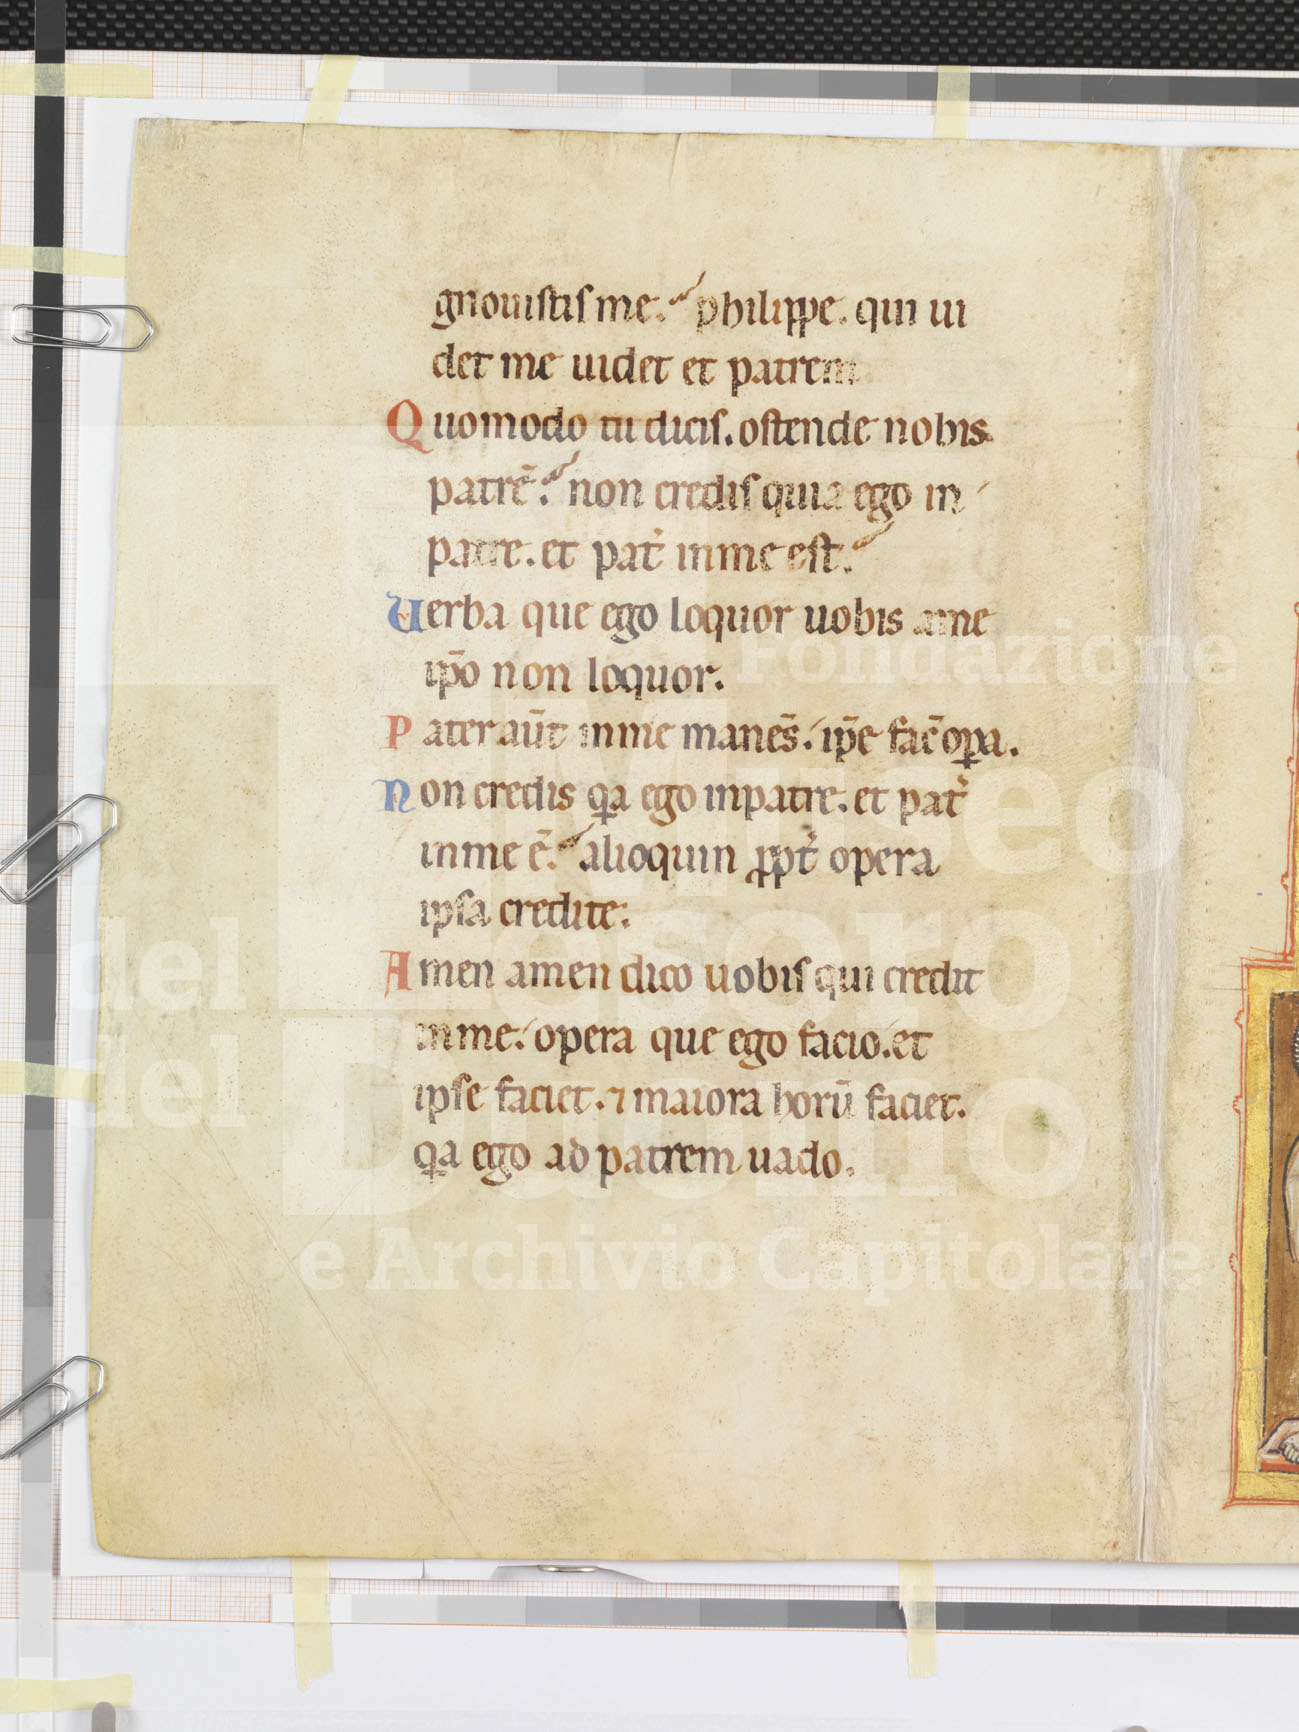 gnouistis me. philippe. qui ui
det me uidet et patrem
Quomodo tu dicis. ostende nobis
patrē. non credis quia ego in
patre. et pat̉ in me est.
Verba que ego loquor uobis a me
ip̄o non loquor.
Pater aūt in me manēs. ip̄e fac̄ oꝑa.
Non credis qa ego in patre. et pat̉
in me ē. alioquin ꝓpt̉ opera
ipsa credite.
Amen amen dico uobis qui credit
in me. opera que ego facio. et
ipse faciet. ⁊ maiora horū faciet.
qa ego ad patrem uado.
Fondazione
Museo
del Tesoro
del Duomo
e Archivio Capitolare